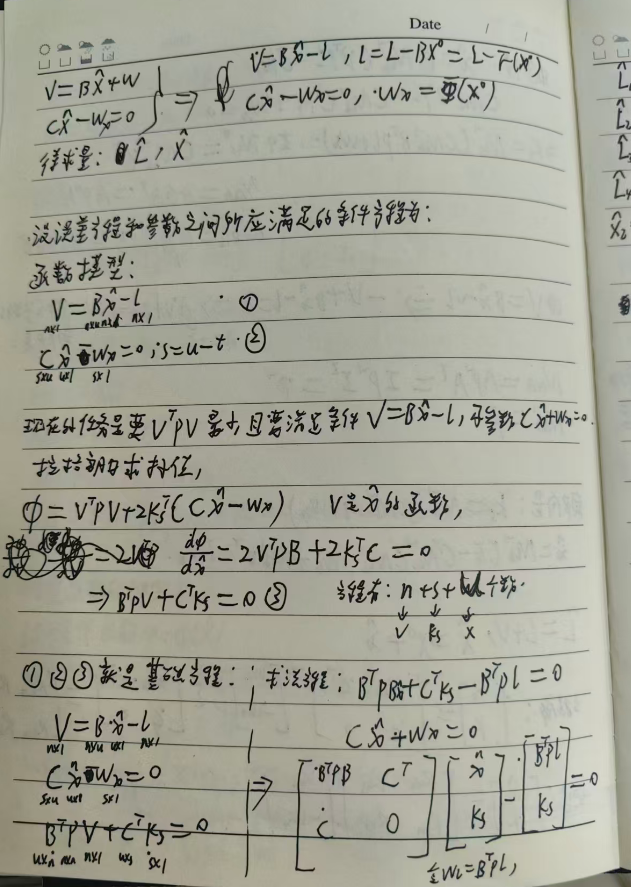 Date / /
V=BX̂+W
CX̂-Wx=0 } ⇒ V=Bx̂-l, l=L-BX⁰=L-F(X⁰)
Cx̂-Wx=0, Wx=Φ(X⁰)
待求量: L̂, X̂
设误差方程和参数之间所应满足的条件方程为:
函数模型:
V=Bx̂-l ①
n×1 n×u u×1 n×1
Cx̂-Wx=0, s=u-t ②
s×u u×1 s×1
现在的任务是要VᵀPV最小,且要满足条件V=Bx̂-l,和参数Cx̂+Wx=0.
拉格朗日求极值,
ϕ=VᵀPV+2Ksᵀ(Cx̂-Wx) V是x̂的函数,
dϕ/dx̂=2VᵀPB+2KsᵀC=0
⇒BᵀPV+CᵀKs=0 ③ 方程有: n+s+u个数.
↓ ↓ ↓
V Ks X
①②③就是基础方程: 求法方程: BᵀPBx̂+CᵀKs-BᵀPl=0
V=Bx̂-l
n×1 n×u u×1 n×1
Cx̂+Wx=0
Cx̂-Wx=0
s×u u×1 s×1
BᵀPV+CᵀKs=0
u×n n×n n×1 u×s s×1
⇒ [BᵀPB Cᵀ
C 0] [x̂
Ks] - [BᵀPl
Ks] =0
令WL=BᵀPl,
L̂
L̂₂
L̂
L̂₄
X̂₂